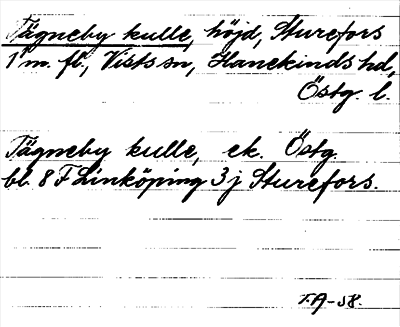 Tägneby kulle, höjd, Sturefors
1 m. fl., Vists sn, Hanekinds hd,
Östg. l.
Tägneby kulle, ek. Östg.
bl. 8 F Linköping 3 j Sturefors.
F.A-58.